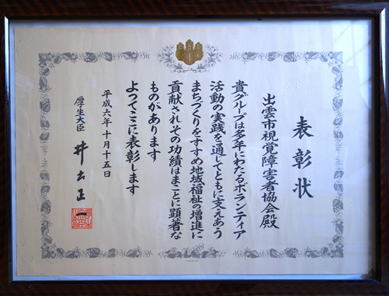 表彰状
出雲市視覚障害者協会殿
貴グループは多年にわたるボランティア
活動の実践を通してともに支えあう
まちづくりをすすめ地域福祉の増進に
貢献されその功績はまことに顕著な
ものがあります
よってここに表彰します
平成六年十月十五日
厚生大臣 井出正一